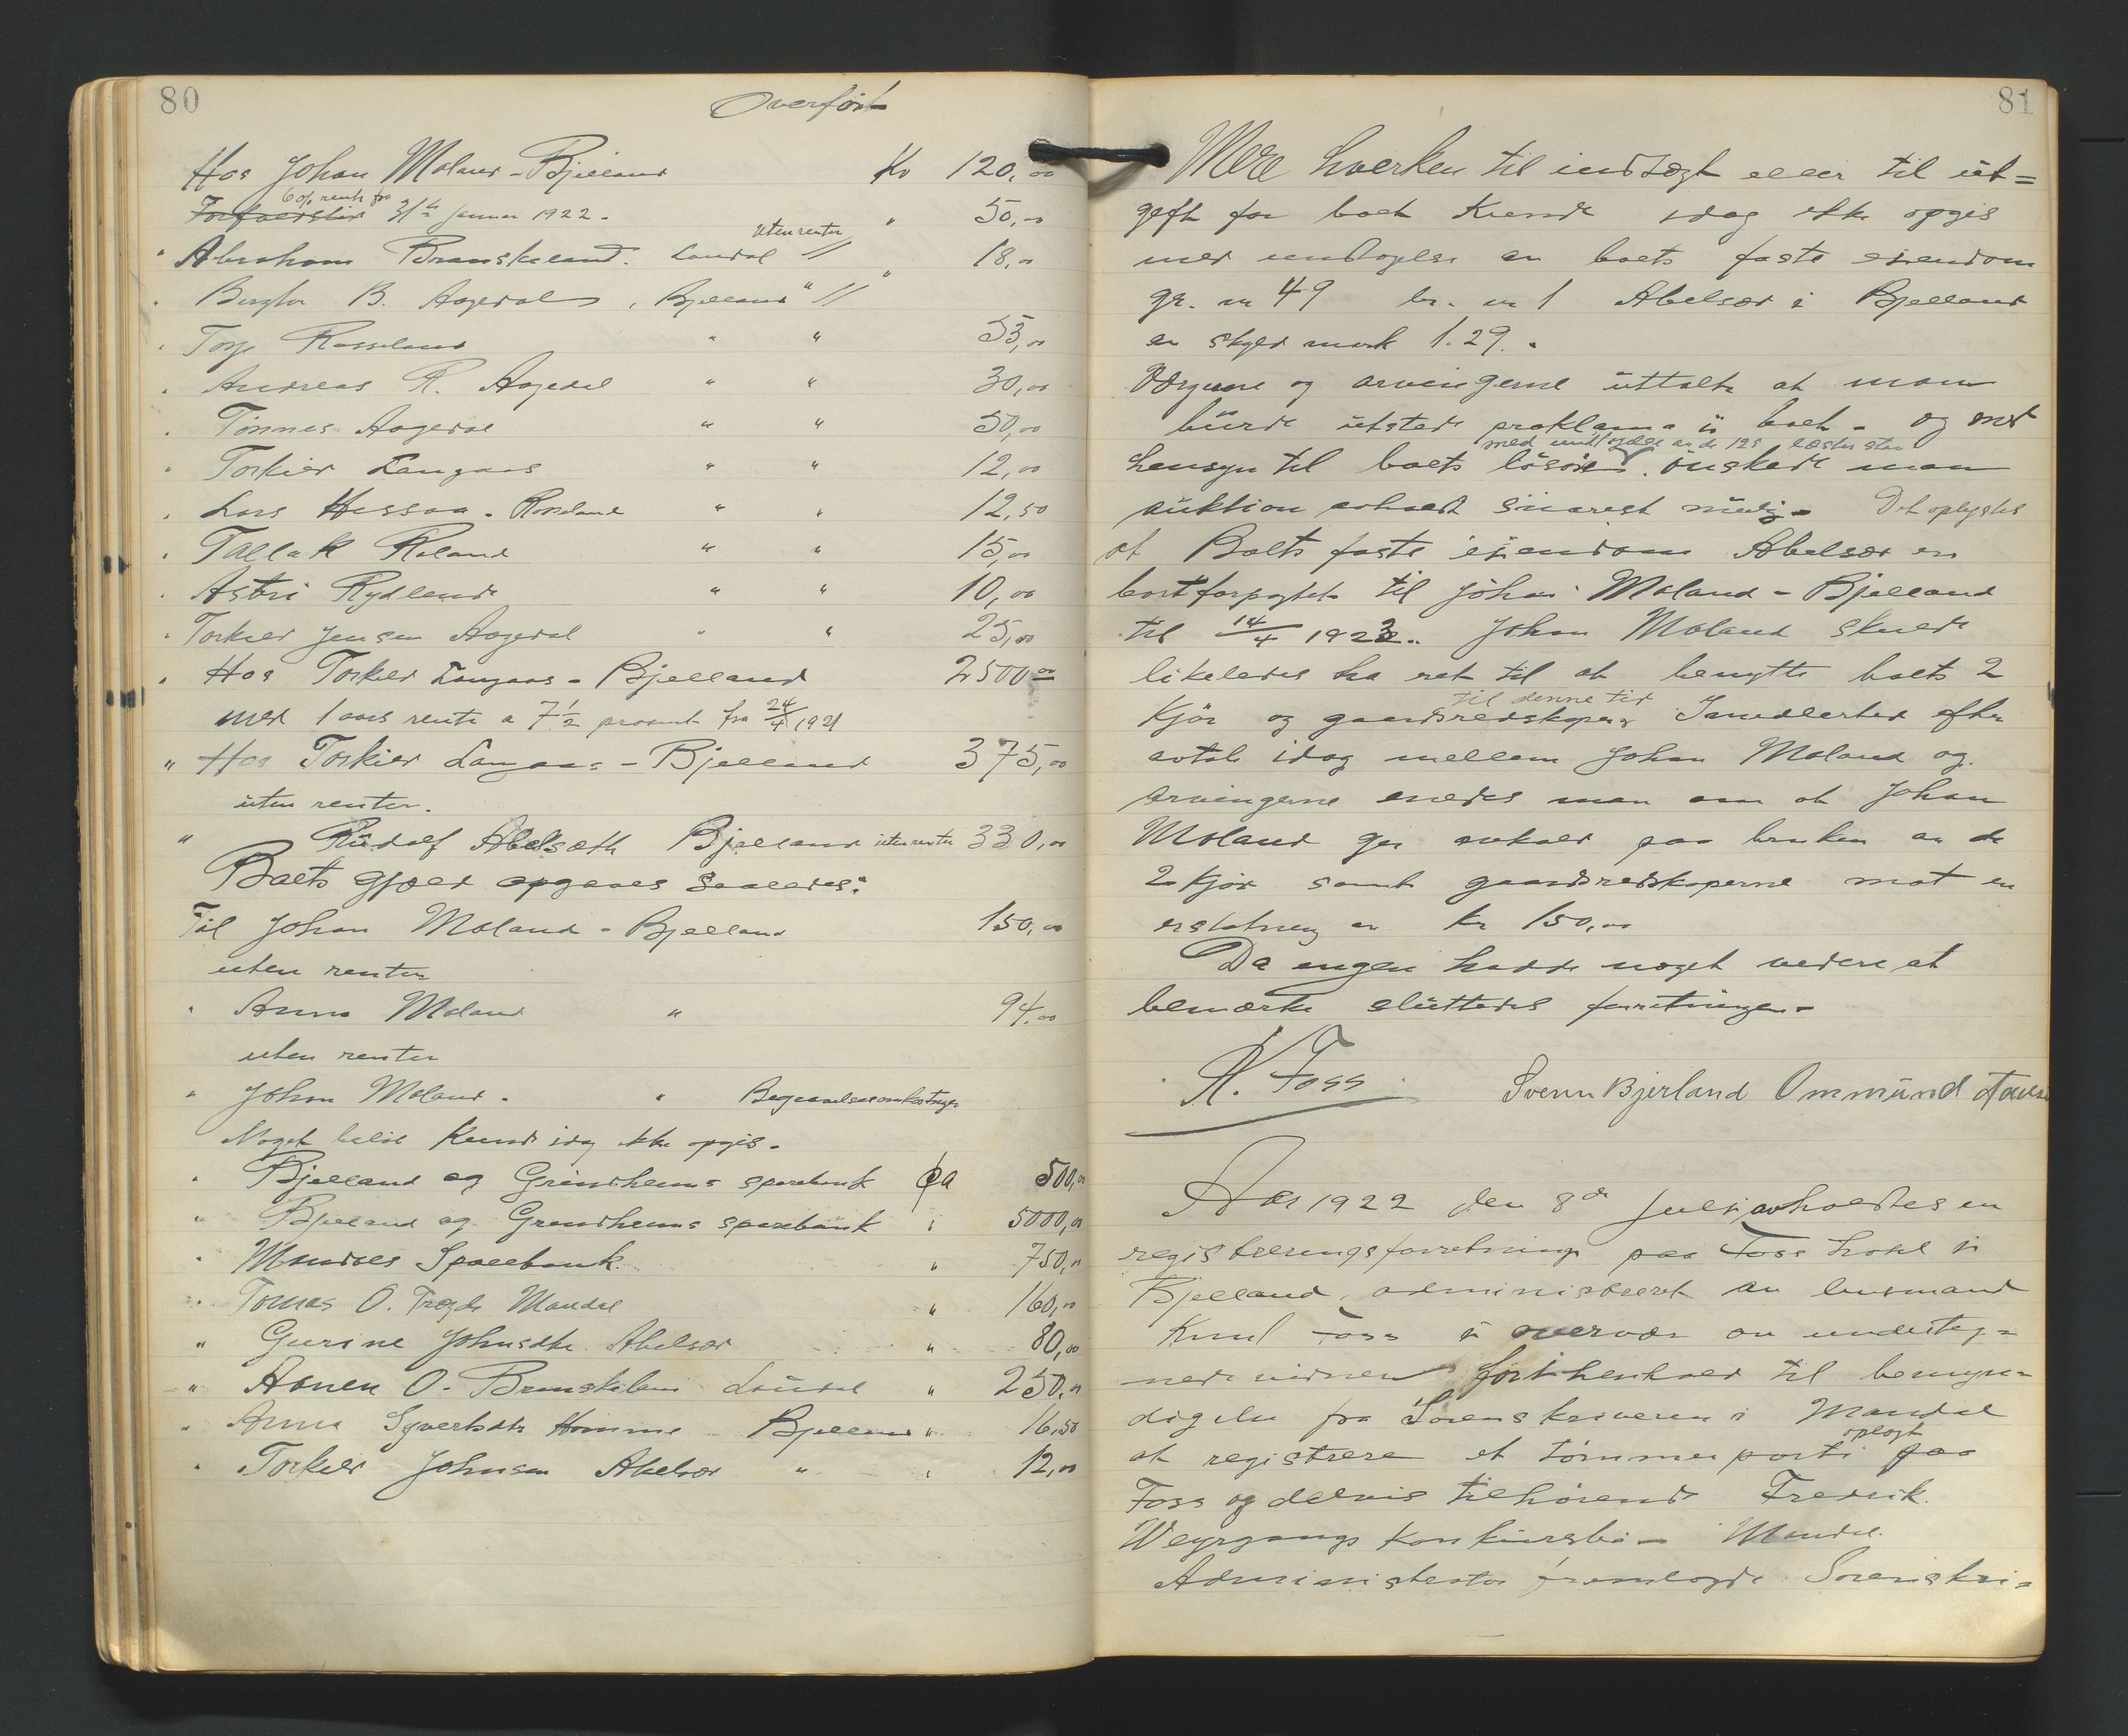 80
Overført
Hos Johan Moland - Bjelland Kr 120,00
6 % rente fra
Forfaldstid 31te Januar 1922. " 50,00
uten renter
" Abraham Brunskeland. Laudal // 18,00
" Bergtor B. Aagedal, Bjelland " // "
" Torje Rosseland " " 55,00
" Andreas R. Aagedal " " 30,00
" Tönnes Aagedal " " 50,00
" Torkild Langaas " " 12,00
" Lars Hessaa - Roseland " " 12,50
" Tallak Roland " " 15,00
" Astri Rydlende " " 10,00
" Torkild Jensen Aagedal " " 25,00
" Hos Torkild Langaas - Bjelland 2500,00
med 1 aars rente a 7 1/2 prosent fra 24/4 1921
" Hos Torkild Langaas - Bjelland 375,00
uten renter.
" Rudolf Abelsæth Bjelland uten renter 330,00
Boets gjæld opgaves saaledes:
Til Johan Moland - Bjelland 150,00
uten renter
" Anna Moland " 94,00
uten renter
" Johan Moland. " Begravelsesomkostninger
Noget beløb kunde idag ikke opgis.
" Bjelland og Grindheims sparebank ca 500,00
" Bjelland og Grendheims sparebank " 5000,00
" Mandals Sparebank. " 750,00
" Tomas O. Trøgde Mandal " 160,00
" Gurine Johnsdtr. Abelsæt " 80,00
" Asnen O. Brunskelan Laudal " 250,00
" Anna Syvertsdtr Homme Bjelland " 16,50
" Torkild Johnsen Abelsæt " " 12,00
81
Mere hverken til indtægt eller til ut=
gift for boet kunde idag ikke opgis
med undtagelse av boets faste eiendom
gr. nr 49 br. nr 1 Abelsæt i Bjelland
av skyld mark 1.29.
Værgerne og arvingerne uttalte at man
burde utstede proklama i boet. og med
med undtagelse av de
hensyn til boets løsøre. ønskede man
auktion avholdt snarest mulig. Det oplystes
at Boets faste eiendom Abelsæt er
bortforpagtet til Johan Moland - Bjelland
til 14/4 1923. Johan Moland skulde
likeledes ha ret til at benytte boets 2
til denne tid
kjør og gaardsredskaper. Imidlertid efter
avtale idag mellem Johan Moland og
arvingerne enedes man om at Johan
Moland gir avkald paa bruken av de
2 kjør samt gaardsredskaperne mot en
erstatning av kr 150,00
Da ingen hadde noget videre at
bemærke sluttedes forretningen.
K. Foss Svenn Bjerland Ommund
Aar 1922 den 8de Juli avholdtes en
registreringsforretning paa Foss hotel i
Bjelland, administreret av lensmand
Knud Foss i overvær av underteg=
nede vidner i henhold til bemyn=
digelse fra Sorenskriveren i Mandal
oplagt
at registrere et tømmerparti paa
Foss og delvis tilhørende Fredrik
Weyrgangs konkursbo - Mandal.
Administrator fremlagde Sorenskri=